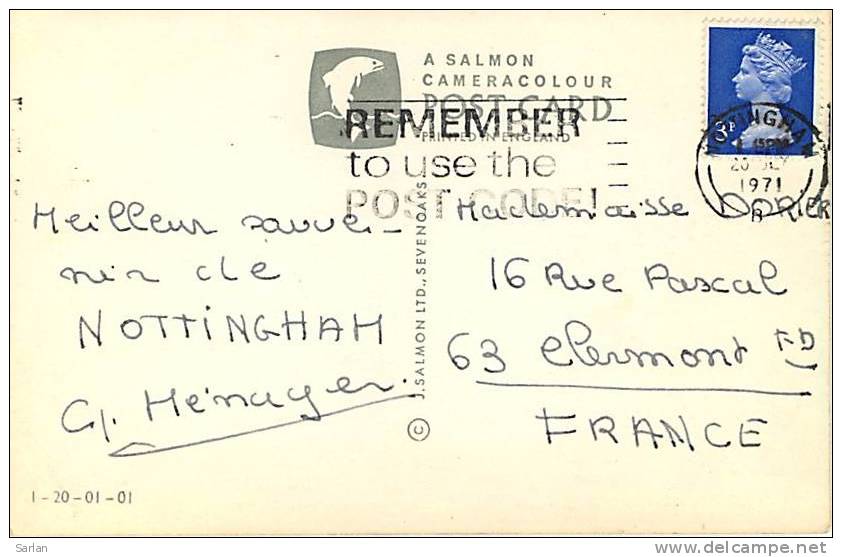 A SALMON
CAMERACOLOUR
POST CARD
PRINTED IN ENGLAND
REMEMBER
to use the
POST CODE!
3P
NOTTINGHAM
1971
Meilleur souve-
nir de
NOTTINGHAM
G. Ménager.
© J. SALMON LTD., SEVENOAKS.
Mademoisse DORIER
16 Rue Pascal
63 Clermont FD
FRANCE
1-20-01-01
Sarlan
www.delcampe.net